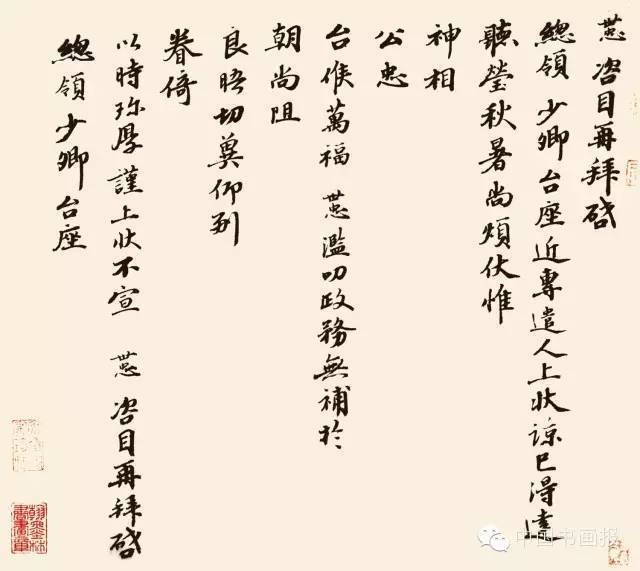 咨目再拜啓
總領少卿台座近專遣人上狀諒已得達
聽瑩秋暑尚煩伏惟
神相
公忠
台候萬福 濫叨政務無補於
朝尚阻
良晤切冀仰副
眷倚
以時珍厚謹上狀不宣 咨目再拜啓
總領少卿台座
翰墨林
書畫章
中国书画报